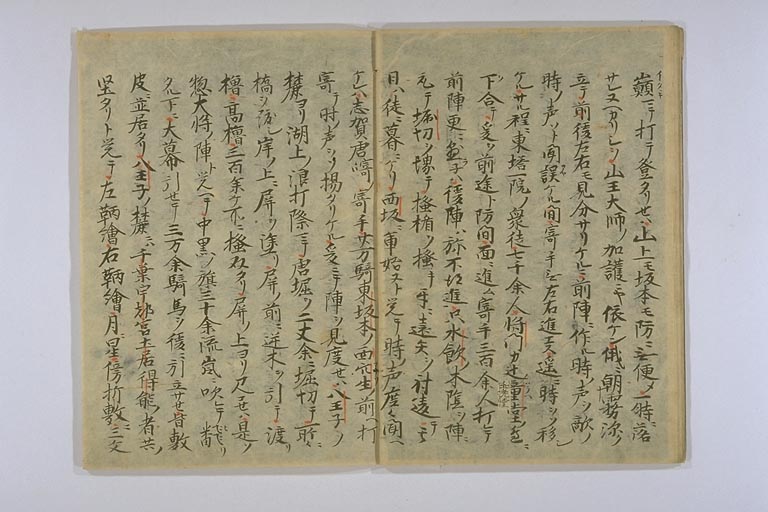 巓ニテ打テ登タリセハ山上モ坂本モ防ニ無便メ一時ニ落
サレヌヘカリシヲ山王大師ノ加護ニヤ依ケン俄ニ朝霧深ク
立テ前後左右モ見分サリケルニ前陣ニ作ル時ノ声ヲ敵ノ
時ノ声ソト聞誤ケル間寄手左右進エス遙ニ時ヲソ移シ
ケルサル程ニ東塔一院ノ衆徒七千余人将門カ辻童堂ヲ
下合テ支ヘ前途ト防間面ニ進ム寄手三百余人打テ
前陣更ニ後陣ハ弥不得進只水飲ノ木陰ニ陣
取テ堀切ヲ塀テ掻楯ヲ掻テ互ニ遠矢ヲ射違テ
日ハ徒ニ暮ニケリ西坂ニ軍始ヌト覚テ時ノ声度々聞ヘ
ケレハ志賀唐崎ノ寄手十万騎東坂本ノ西穴生ノ前ニ打
寄テ時ノ声ヲソ揚タリケル爰ニテ陣ヲ見度セハ八王子ノ
麓ヨリ湖上ノ浪打際ニテ唐堀ヲ二丈余ニ堀切テ所々ニ
橋ヲ渡シ岸ノ上ニ屏ヲ塗リ屏ノ前ニ逆木ヲ引テ渡リ
櫓高櫓三百余ケ所ニ掻双タリ屏ノ上ヨリ見セハ是ソ
惣大将ノ陣ト覚ヘテ中黒ノ旗三十余流嵐ニ吹
タル下ニ大幕ヲ引セテ三万余騎馬ヲ後ニ引立サせ皆敷
皮ニ並居タリ八王子ノ麓ニハ千葉宇都宮土居得能ノ者共
堅タリト覚テ左鞆繪右鞆繪月ニ星傍折敷ニ三文